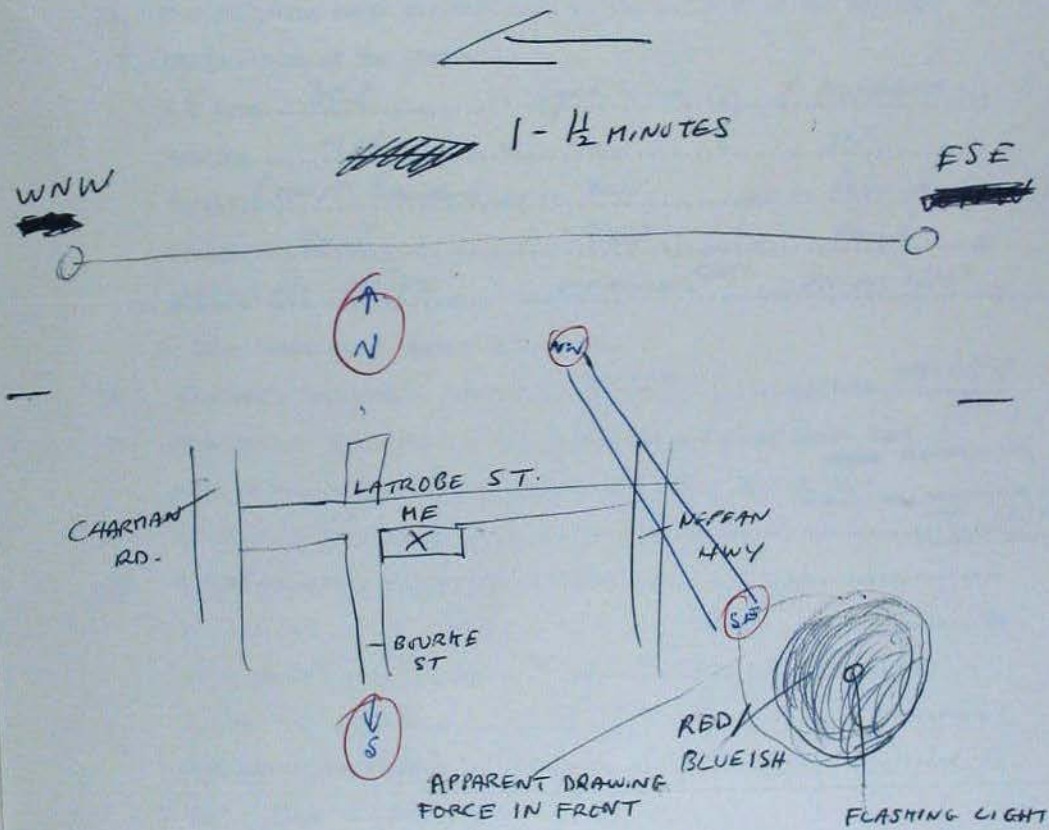 1 - 1½ MINUTES
WNW
ESE
N
NW
LATROBE ST.
ME
X
CHARMAN
RD.
NEPEAN
HWY
SE
BOURKE
ST
S
RED/
BLUEISH
APPARENT DRAWING
FORCE IN FRONT
FLASHING LIGHT